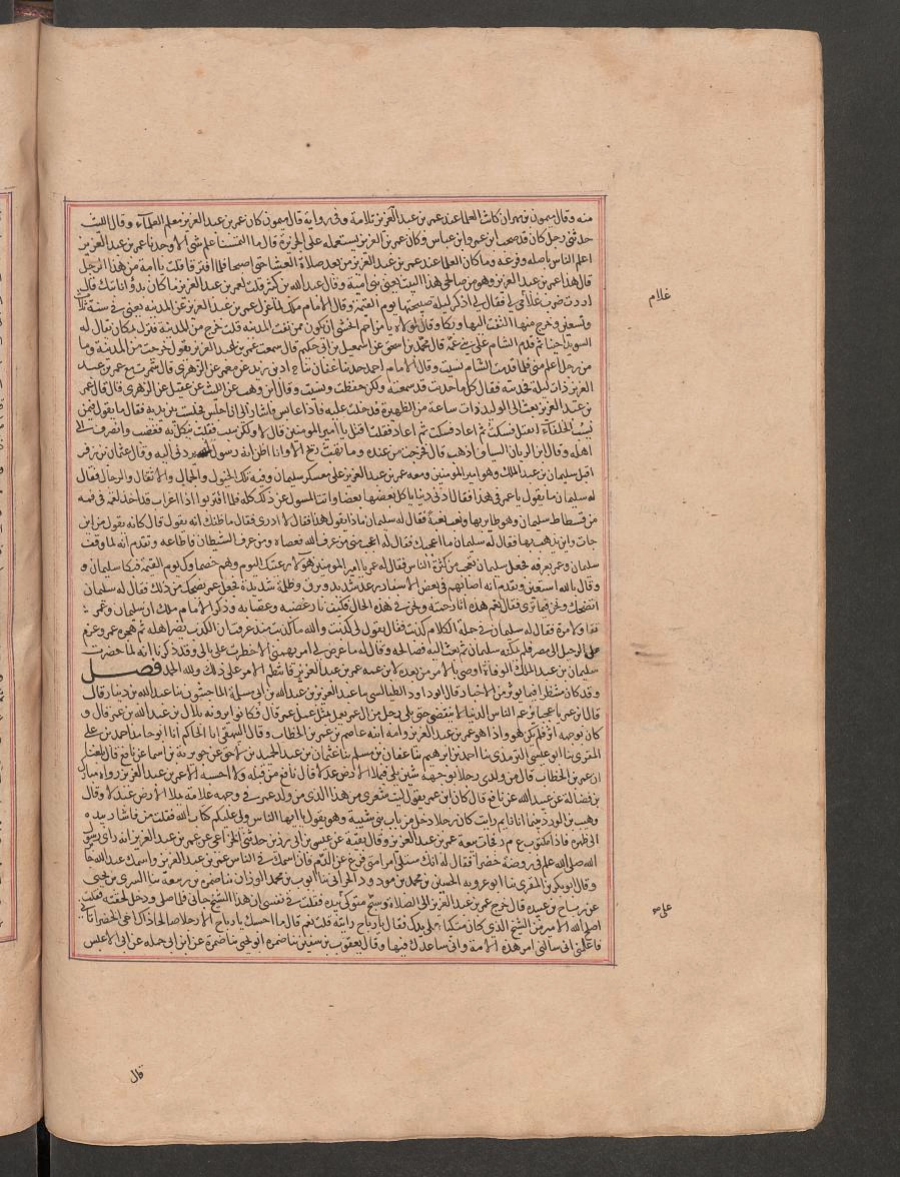 منه وقال ميمون بن مهران كانت العلماء عند عمر بن عبد العزيز تلامذة وفي رواية قال ميمون كان عمر بن عبد العزيز معلم العلماء وقال الليث
حدثني رجل كان قد صحب ابن عمر وابن عباس وكان عمر بن عبد العزيز يستعمله على الجزيرة قال ما التمسنا علم شي الا وجدنا عمر بن عبد العزيز
اعلم الناس باصله وفرعه وما كان العلماء عند عمر بن عبد العزيز من بعد صلاة العشا حتى اصبحا فلما افترقا قلت يا امة من هذا الرجل
قال هذا عمر بن عبد العزيز وهو من صالحي هذا البيت يعني بني امية وقال عبد الله بن كثير قلت لعمر بن عبد العزيز ما كان بدؤ انابتك قال
اردت ضرب غلام لي فقال لي اذكر ليلة صبيحتها يوم القيمه وقال الامام مالك لما عزل عمر بن عبد العزيز عن المدينه يعني في سنة ثلاث
وتسعين وخرج منها التفت اليها وبكا وقال لمولاه يا مزاحم نخشى ان نكون ممن نفت المدينه قلت خرج من المدينه فنزل بمكان يقال له
السويدا حينا ثم قدم الشام على بني عمه قال محمد بن اسحق عن اسمعيل بن ابي حكيم قال سمعت عمر بن عبد العزيز يقول خرجت من المدينة وما
من رجل اعلم مني فلما قدمت الشام نسيت وقال الامام احمد حدثنا عفان ثنا حماد بن زيد عن معمر عن الزهري قال سمرت مع عمر بن عبد
العزيز ذات ليلة فحدثته فقال كل ما حدثت قد سمعته ولكن حفظت ونسيت وقال ابن وهب عن الليث عن عقيل عن الزهري قال قال عمر
بن عبد العزيز بعث الي الوليد ذات ساعة من الظهيرة فدخلت عليه فاذا هو عابس فاشار الي ان اجلس فجلست بين يديه فقال ما يقول فيمن
يسب الخلفاء ايقتل فسكت ثم اعاد فسكت ثم اعاد فقلت اقتل يا امير المومنين قال لا ولكن سب فقلت ينكل به فغضب وانصرف الى
اهله وقال ابن الريان السياف اذهب قال فخرجت من عنده وما تهب ريح الا وانا اظن انه رسول يردني اليه وقال عثمان بن زفر
اقبل سليمان بن عبد الملك وهو امير المومنين ومعه عمر بن عبد العزيز على معسكر سليمان وفيه تلك الخيول والجمال والاثقال والرجال فقال
له سليمان ما يقول يا عمر في هذا فقال ارى دنيا ياكل بعضها بعضا وانت المسول عن ذلك كله فلما اقتربوا اذا الغراب قد اخذ لقمة في فيه
من فسطاط سليمان وهو طاير بها ونعب نعبة فقال له سليمان ماذا يقول هذا فقال لا ادري فقال ما ظنك انه يقول قال كانه يقول من اين
جات واين يذهب بها فقال له سليمان ما اعجبك فقال له اعجب مني من عرف الله فعصاه ومن عرف الشيطان فاطاعه وتقدم انه لما وقف
سليمان وعمر بعرفه فجعل سليمان يتعجب من كثرة الناس فقال له عمر يا امير المومنين هولاء رعيتك اليوم وهم خصماوك يوم القيمة فبكا سليمان و
وقال بالله استعين وتقدم انه اصابهم في بعض الاسفار رعد شديد وبرق وظلمة شديدة فجعل عمر يضحك من ذلك فقال له سليمان
اتضحك ونحن فيما ترى فقال نعم هذه اثار رحمته ونحن في هذه الحال فكيف باثار غضبه وعقابه وذكر الامام ملك ان سليمان وعمر
تقاولا مرة فقال له سليمان في جملة الكلام كذبت فقال يقول لي كذبت والله ما كذبت منذ عرفت ان الكذب يضر اهله ثم هجره عمر وعزم
على الرحيل الى مصر فلم يمكنه سليمان ثم بعث اليه فصالحه وقال له ما عرض لي امر يهمني الا خطرت على بالي وقد ذكرنا انه لما حضرت
سليمان بن عبد الملك الوفاة اوصى بالامر من بعده لابن عمه عمر بن عبد العزيز فانتظم الامر على ذلك ولله الحمد فصل
وقد كان منتظرا فيما يوثر من الاخبار قال ابو داود الطيالسي ثنا عبد العزيز بن عبد الله بن ابي سلمة الماجشون ثنا عبد الله بن دينار قال
قال ابن عمر يا عجبا يزعم الناس الدنيا لا تنقضي حتى يلي رجل من ال عمر يعمل بمثل عمل عمر قال فكانوا يرونه بلال بن عبد الله بن عمر قال و
كان بوجهه اثر فلم يكن هو واذا هو عمر بن عبد العزيز وامه ابنة عاصم بن عمر بن الخطاب وقال البيهقي انا الحاكم انا ابو حامد احمد بن علي
المقري ثنا ابو عيسى الترمذي ثنا احمد بن ابراهيم ثنا عفان بن مسلم ثنا عثمان بن عبد الحميد بن لاحق عن جويرية بن اسما عن نافع قال بلغنا
ان عمر بن الخطاب قال من ولدي رجلا بوجهه شين يلي فيملا الارض عدلا قال نافع من قبله ولا احسبه الا عمر بن عبد العزيز رواه مبارك
بن فضالة عن عبيد الله عن نافع قال كان ابن عمر يقول ليت شعري من هذا الذي من ولد عمر في وجهه علامة يملا الارض عدلا وقال
وهيب بن الورد بينما انا نايم رايت كان رجلا دخل من باب بني شيبة وهو يقول يا ايها الناس ولي عليكم كتاب الله فقلت من فاشار بيده
الى ظفره فاذا مكتوب ع م ر فجات بيعة عمر بن عبد العزيز وقال بقية عن عيسى بن ابي رزين حدثني الخزاعي عن عمر بن عبد العزيز انه راى رسول
الله صلى الله علم في روضة خضرا فقال له انك ستلي امر امتي فزع عن الدم فان اسمك في الناس عمر بن عبد العزيز واسمك عند الله جابر
وقال ابو بكر بن المقري ثنا ابو عروبة الحسين بن محمد بن مودود الحراني ثنا ايوب بن محمد الوزان ثنا ضمرة بن ربيعة ثنا السري بن يحيى
عن رباح بن عبيدة قال خرج عمر بن عبد العزيز الى الصلاة وشيخ متوكئ على يده فقلت في نفسي ان هذا الشيخ جافي فلما صلى ودخل لحقته فقلت
اصلح الله الامير من الشيخ الذي كان متكئا على يدك فقال يا رباح رايته قلت نعم قال ما احسبك يا رباح الا رجلا صالحا ذاك اخي الخضر اتاني
فاعلمني اني سالي امر هذه الامة واني ساعدل فيها وقال يعقوب بن سفين ثنا ضمرة ابو يحيى ثنا ضمرة عن ابن ابي حملة عن ابي الاعيس
غلام
على صح
قال